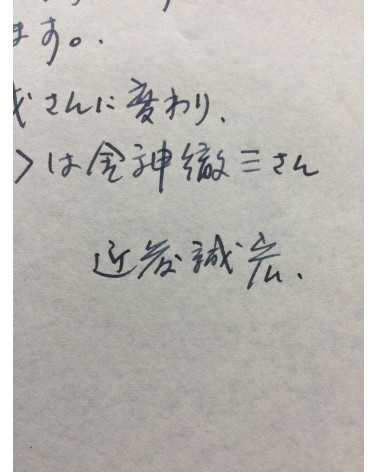 ます。
さんに変わり、
は金神徹三さん
近藤誠宏、